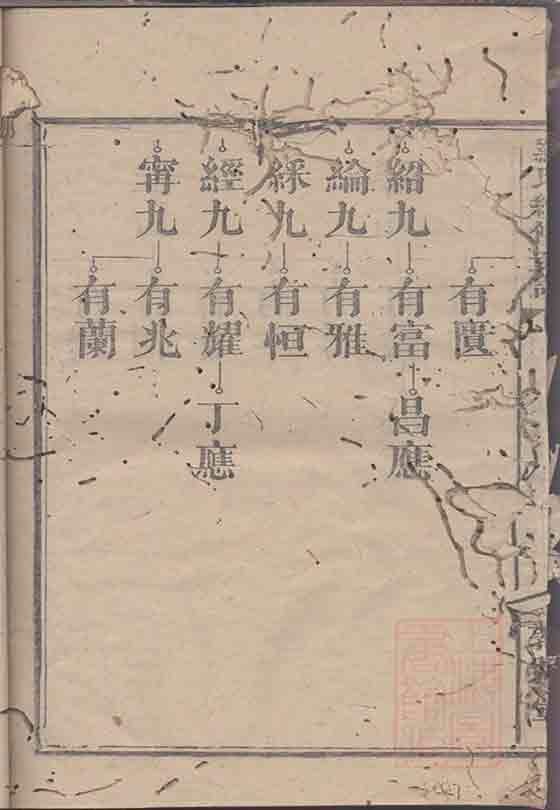 有匱
紹九
有富
昌應
綸九
有雅
綵九
有恒
經九
有耀
丁應
甯九
有兆
有蘭